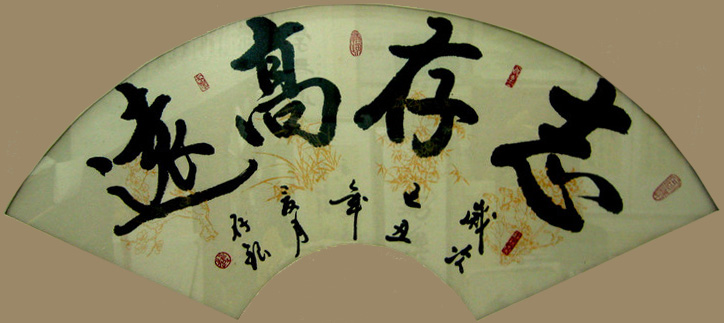 志存高遠
歲次己丑年夏月